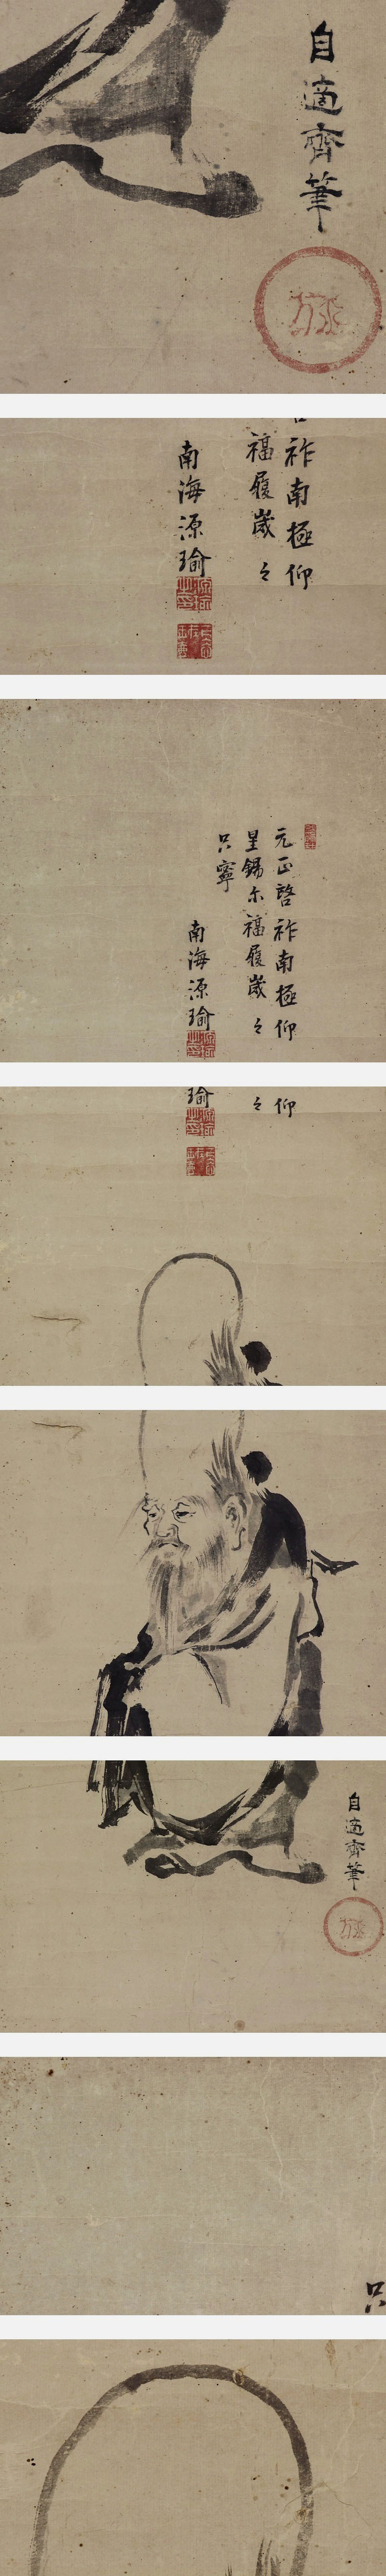 自適齋筆
祚南極仰
福履歳々
南海源瑜
元正啓祚南極仰
星錫尓福履歳々
只寧
南海源瑜
仰
々
瑜
自適齋筆
只